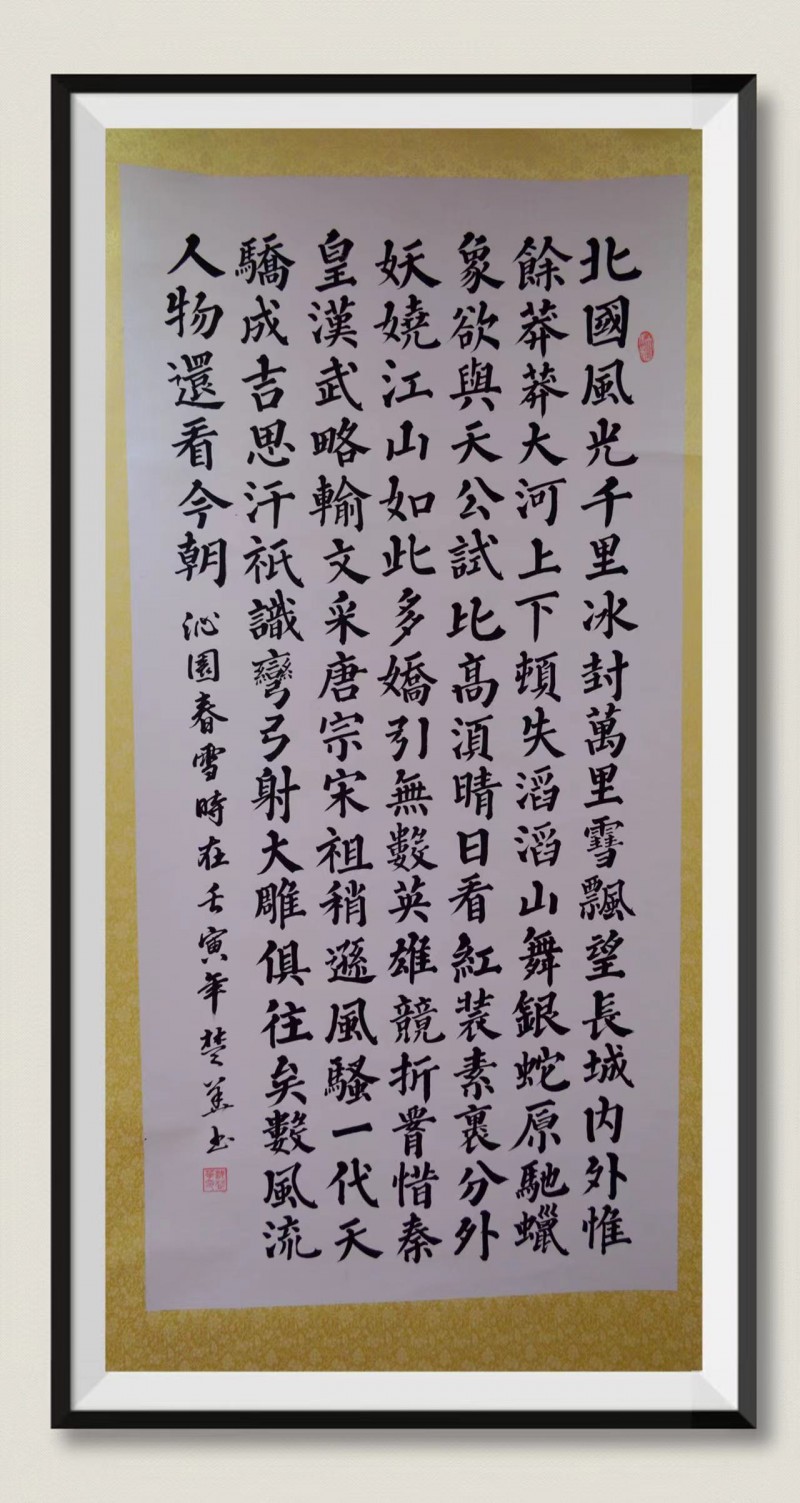 北國風光千里冰封萬里雪飄望長城内外惟
餘莽莽大河上下頓失滔滔山舞銀蛇原馳蠟
象欲與天公試比高須晴日看紅裝素裹分外
妖嬈江山如此多嬌引無數英雄競折腰惜秦
皇漢武略輸文采唐宗宋祖稍遜風騷一代天
驕成吉思汗祇識彎弓射大雕俱往矣數風流
人物還看今朝
沁園春雪時在壬寅年楚 書